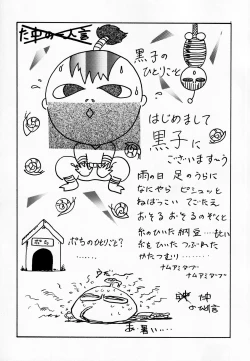 た中の一人言
黒子の
ひとりごと
はじめまして
黒子に
ございます〜う
雨の日 足のうらに
なにやら ピシュッと
ねばっこい てごたえ
おそる おそるのぞくと
糸のひいた 納豆…勢い
糸をひいた つぶれた
かたつむり……
ナムアミダーブー
ナムアミダーブ
ぽち
ポチのひとりごと?
……
うだ〜
あ・暑い…
の独言